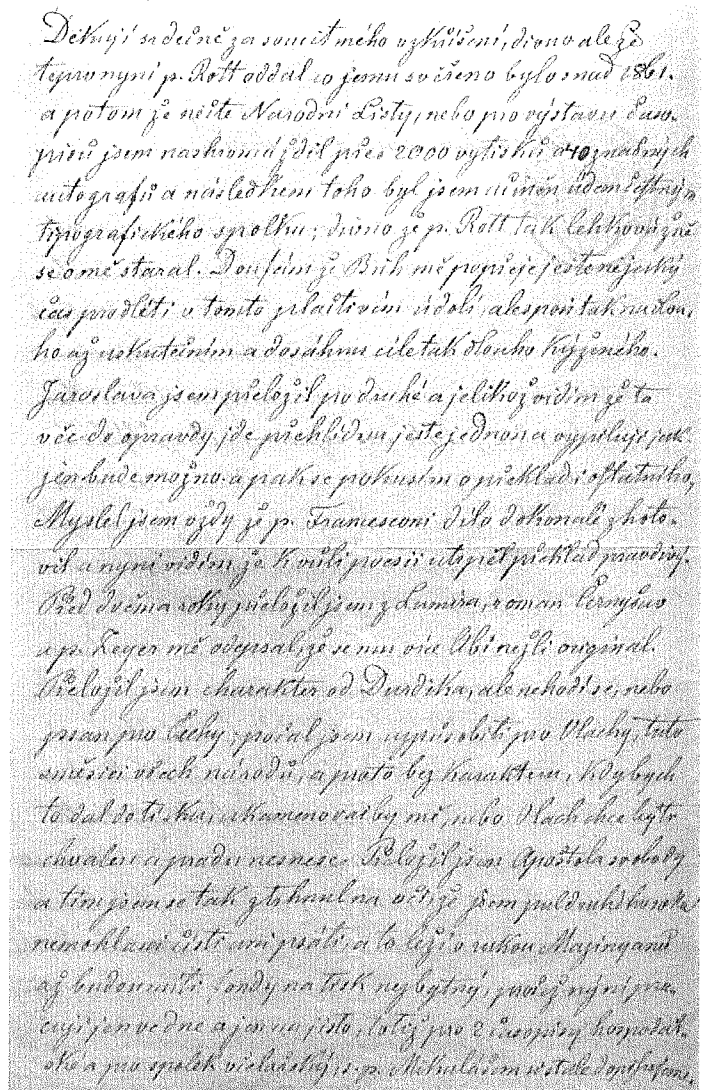 Děkuji srdečně za soucit mého vzkříšení, divno ale že
teprv nyní p. Rott oddal co jemu svěřeno bylo snad 1861.
a potom že nečte Národní Listy, nebo pro výstavu časo-
pisů jsem nashromáždil přes 2000 výtisků a 40 znamých
autografů a následkem toho byl jsem učiněn údem čestným
typografického spolku; divno že p. Rott tak lehkovážně
se o mě staral. Doufám že Bůh mě popřeje ještě nějaký
čas prodlíti v tomto plačtivém údolí, alespoň tak na dlou-
ho až uskutečním a dosáhnu cíle tak dlouho kýženého.
Jaroslava jsem přeložil po druhé a jelikož vidím že ta
věc do opravdy jde přehlídnu ještě jednou a vypiluji jak
jen bude možno a pak se pokusím o překlad i ostatního,
Myslel jsem vždy že p. Francesconi dílo dokonale zhoto-
vil a nyní vidím že k vůli poesii utrpěl překlad pravdivý.
Před dvěma roky přeložil jsem z Lumíra, roman
a p. Zeyer mě odepsal, že se mu více líbí nežli original.
Přeložil jsem charakter od Durdíka, ale nehodí se, nebo
psán pro Čechy; počal jsem spůsobiti pro Vlachy, tuto
směsici všech národů, a proto bez karakteru, kdybych
to dal do tisku, ukamenovali by mě, nebo Vlach chce býti
chválen a pravdu nesnese. Přeložil jsem Apoštola svobody
a tím jsem se tak ztrhanl na očích že jsem půl druhého roku
nemohl ani čísti ani psáti a to leží v rukou Mazinyanů
až budou míti fondy na tisk nezbytný, pročež nyní pra-
cuji jen ve dne a jen na jisto, totiž pro 2 časopisy hospodář-
ské a pro spolek včelařský, s p. Mikulášem stále dopisujeme,